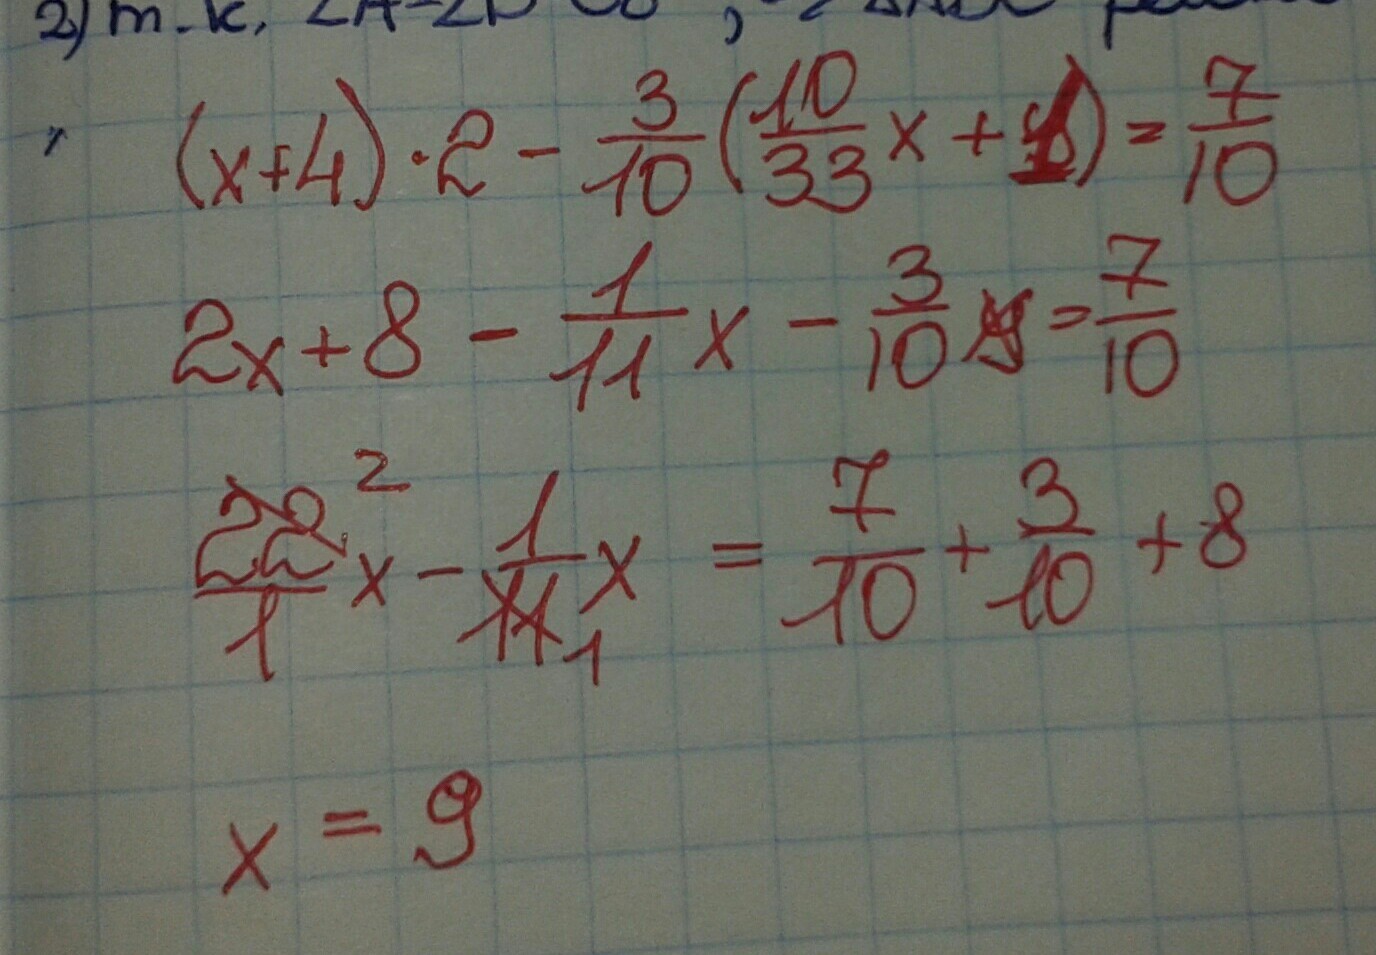 2) т.к.
(x+4)·2 - 3/10 (10/33 x + 1) = 7/10
2x+8 - 1/11 x - 3/10 = 7/10
22/1 ² x - 1/11 ₁ x = 7/10 + 3/10 + 8
x = 9